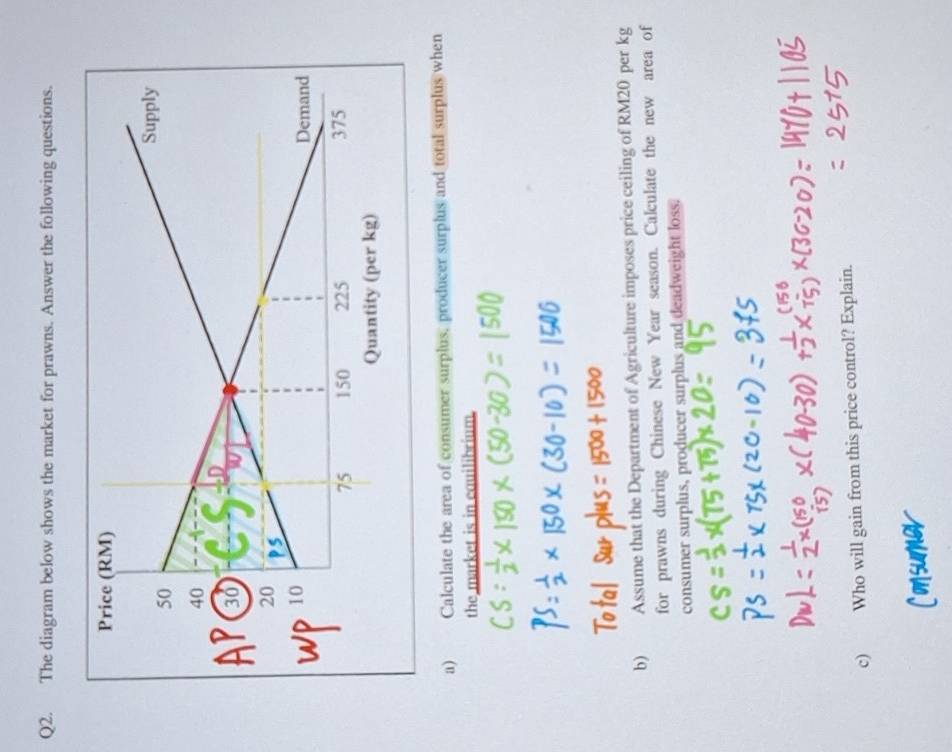 Q2. The diagram below shows the market for prawns. Answer the following questions.
Price (RM)
Supply
50
40
AP 30
CS
DWL
20
PS
10
WP
Demand
75 150 225 375
Quantity (per kg)
a) Calculate the area of consumer surplus, producer surplus and total surplus when
the market is in equilibrium.
CS = 1/2 x 150 x (50-30) = 1500
PS = 1/2 x 150 x (30-10) = 1500
Total surplus = 1500 + 1500
b) Assume that the Department of Agriculture imposes price ceiling of RM20 per kg
for prawns during Chinese New Year season. Calculate the new area of
consumer surplus, producer surplus and deadweight loss.
CS = 1/2 x (75+75) x 20 = 95
PS = 1/2 x 75 x (20-10) = 375
DWL = 1/2 x (150-75) x (40-30) + 1/2 x (150-75) x (30-20) = 1470 + 1105
= 2575
c) Who will gain from this price control? Explain.
Consumer